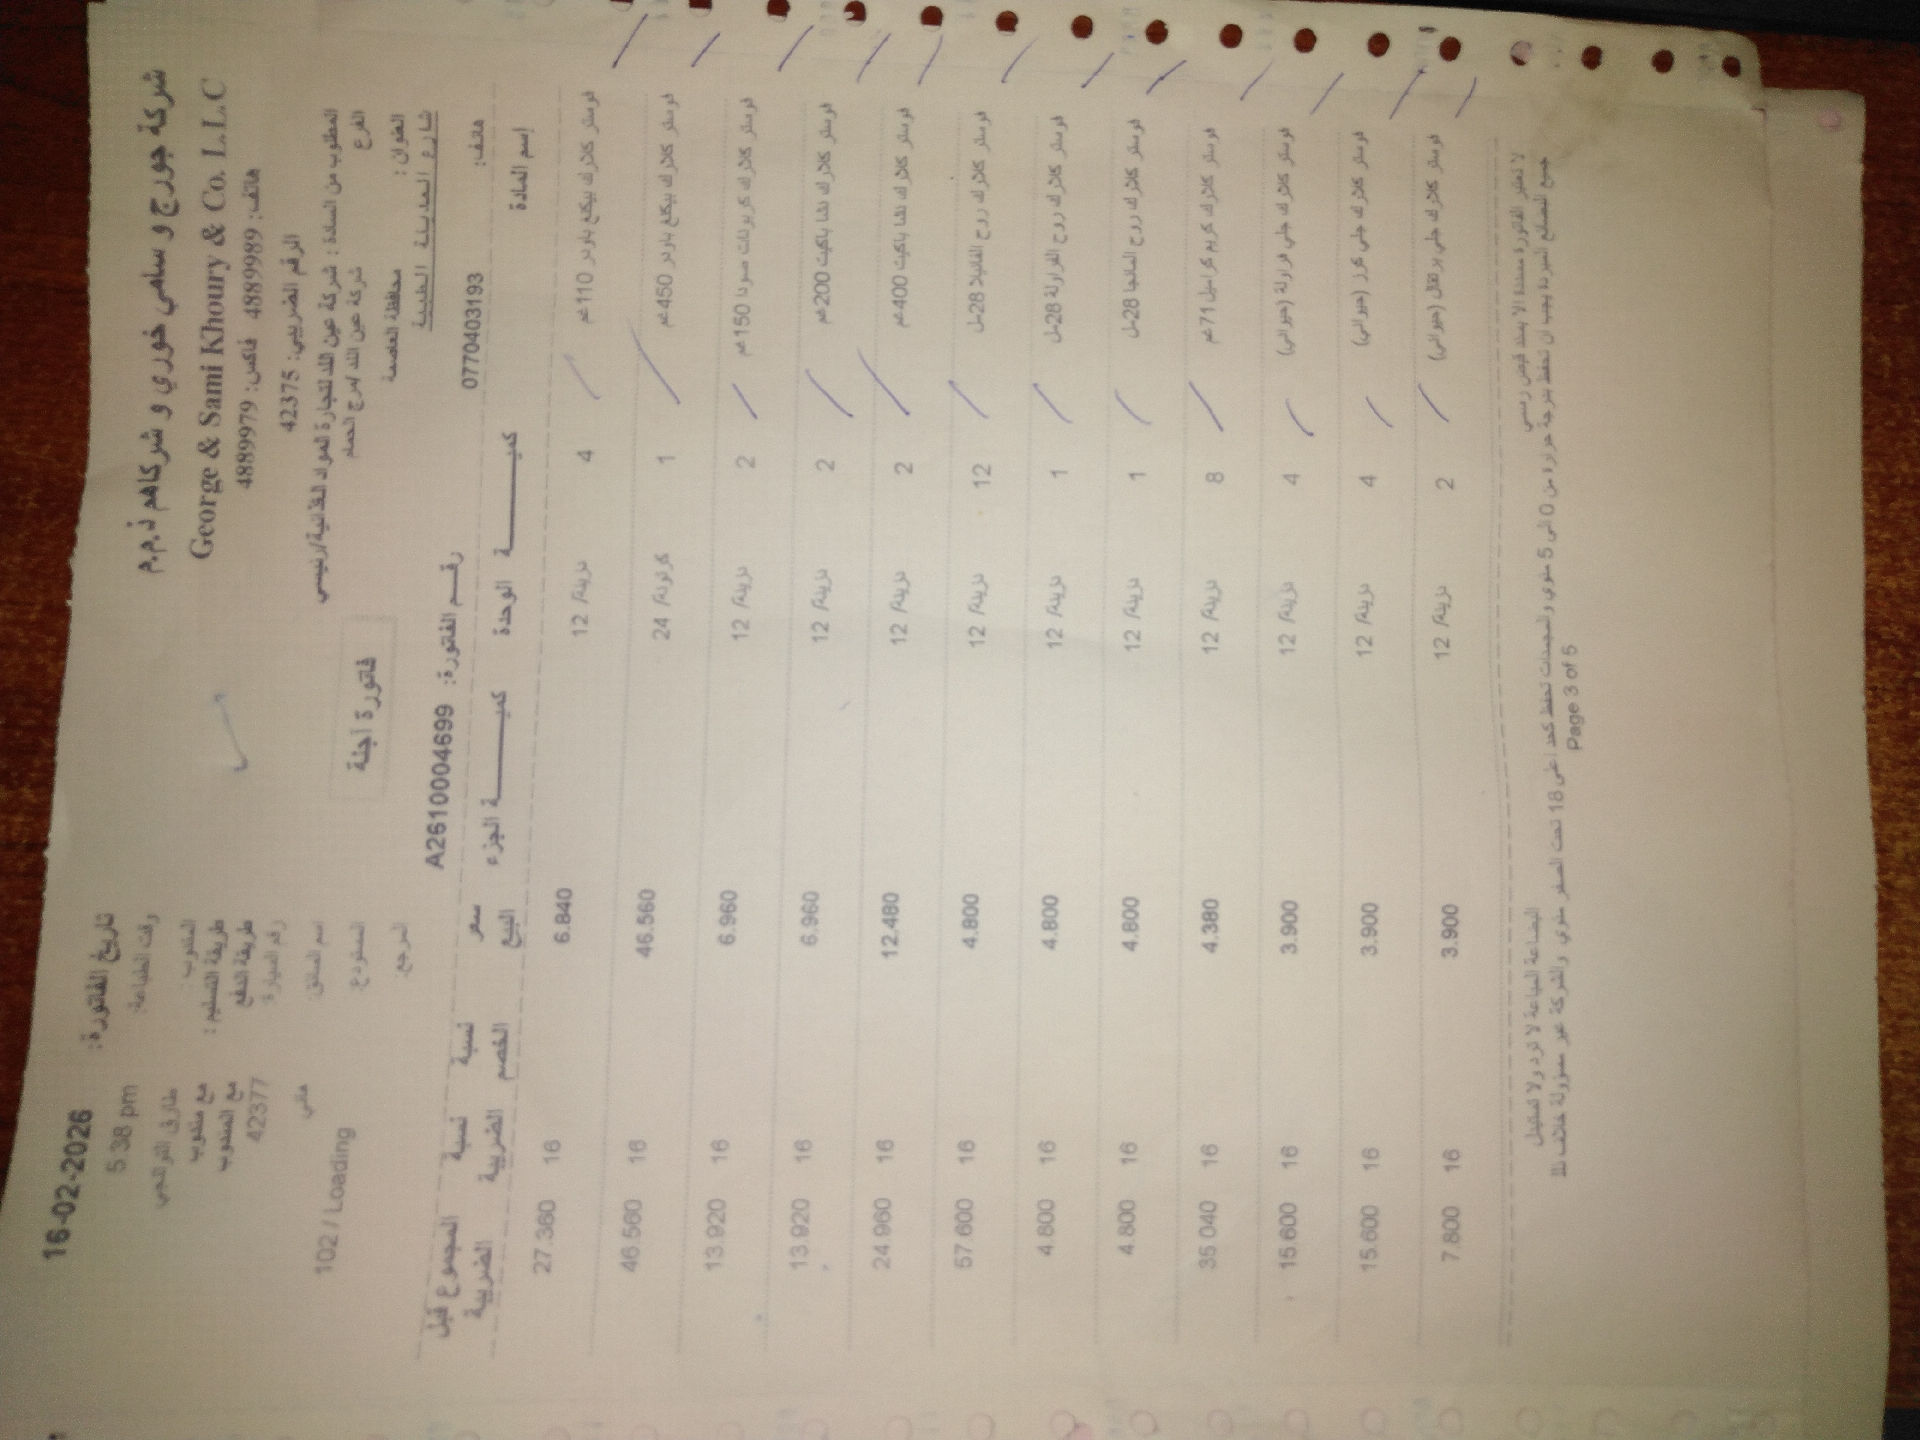 شركة جورج و سامي خوري و شركاهم ذ.م.م
George & Sami Khoury & Co. L.L.C
هاتف: 4889989 فاكس: 4889979
الرقم الضريبي: 42375
تاريخ الفاتورة: 16-02-2026
وقت الطباعة: 5:38 pm
المندوب:
طريقة التسليم: مع مندوب
طريقة الدفع مع المندوب
رقم السيارة: 42377
اسم السائق:
المستودع: 102 / Loading
المرجع:
فاتورة آجلة
المطلوب من السادة: شركة عين الله لتجارة المواد الغذائية/رئيسي
الفرع
العنوان: محافظة العاصمة
هاتف: 0770403193
رقم الفاتورة: A2610004699
إسم المادة كميـة الوحدة كميـة الجزء سعر البيع نسبة الخصم نسبة الضريبة المجموع قبل الضريبة
فوستر كلارك بيكنغ باودر 110غم 4 دزينة/ 12 6.840 16 27.360
فوستر كلارك بيكنغ باودر 450غم 1 كرتونة/ 24 46.560 16 46.560
فوستر كلارك كربونات صودا 150غم 2 دزينة/ 12 6.960 16 13.920
فوستر كلارك نشا باكيت 200غم 2 دزينة/ 12 6.960 16 13.920
فوستر كلارك نشا باكيت 400غم 2 دزينة/ 12 12.480 16 24.960
فوستر كلارك روح الفانيلا 28مل 12 دزينة/ 12 4.800 16 57.600
فوستر كلارك روح الفراولة 28مل 1 دزينة/ 12 4.800 16 4.800
فوستر كلارك روح المانجا 28مل 1 دزينة/ 12 4.800 16 4.800
فوستر كلارك كريم كراميل 71غم 8 دزينة/ 12 4.380 16 35.040
فوستر كلارك جلي فراولة (حيواني) 4 دزينة/ 12 3.900 16 15.600
فوستر كلارك جلي كرز (حيواني) 4 دزينة/ 12 3.900 16 15.600
فوستر كلارك جلي برتقال (حيواني) 2 دزينة/ 12 3.900 16 7.800
لا تعتبر الفاتورة مسددة الا بسند قبض رسمي
البضاعة المباعة لا ترد ولا تستبدل
جميع البضائع المبردة يجب ان تحفظ بدرجة حرارة من 0 الى 5 مئوي والمجمدات تحفظ كحد اعلى 18 تحت الصفر مئوي والشركة غير مسؤولة خلاف ذلك
Page 3 of 5